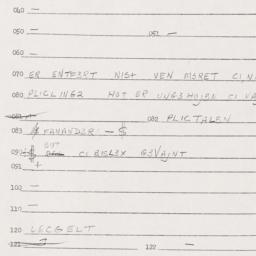 040 —
050 — 051 —
060 —
070 ER ENTE3RT NIST VEN MORET CI,N
080 PLICLING2 HOT ER UNG3HOIBN CI VA
081 082 PLICTALEN
083 $ FAHAND3R: — $
090 $ CI BISL3X G3VAINT
091 +
100 —
110 —
120 LECGELT
121 122 —